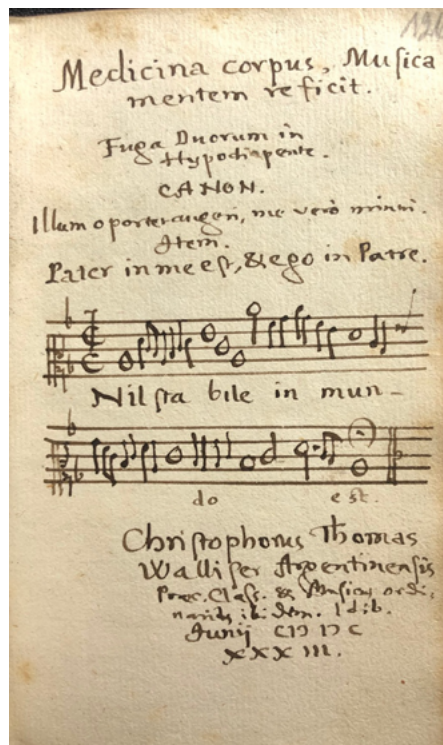 126
Medicina corpus, Musica
mentem reficit.
Fuga Duorum in
Hypodiapente.
CANON.
Illum oportet augeri, me verò minui.
Item.
Pater in me est, & ego in Patre.
Nil sta bile in mun-
do est.
Christophorus Thomas
Walliser Argentinensis
Præc. Class. & Musicus ordi-
narius ibidem. Idib.
Junij CIↃ IↃ C
XXXIII.